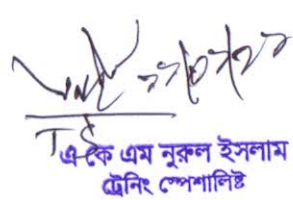 TS
এ কে এম নুরুল ইসলাম
ট্রেনিং স্পেশালিষ্ট